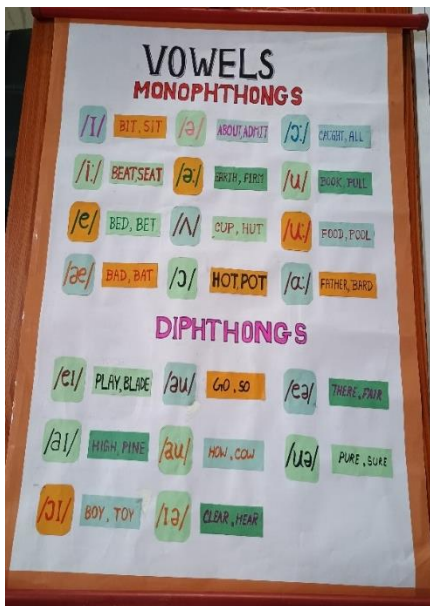 VOWELS
MONOPHTHONGS
/I/ BIT, SIT /ə/ ABOUT, ADMIT /ɔ:/ CAUGHT, ALL
/i:/ BEAT SEAT /ə:/ EARTH, FIRM /u/ BOOK, PULL
/e/ BED, BET /ʌ/ CUP, HUT /u:/ FOOD, POOL
/ae/ BAD, BAT /ɔ/ HOT, POT /a:/ FATHER, BARD
DIPHTHONGS
/eɪ/ PLAY, BLADE /əu/ GO, SO /eə/ THERE, FAIR
/aI/ HIGH, PINE /au/ HOW, COW /uə/ PURE, SURE
/ɔI/ BOY, TOY /Iə/ CLEAR, HEAR